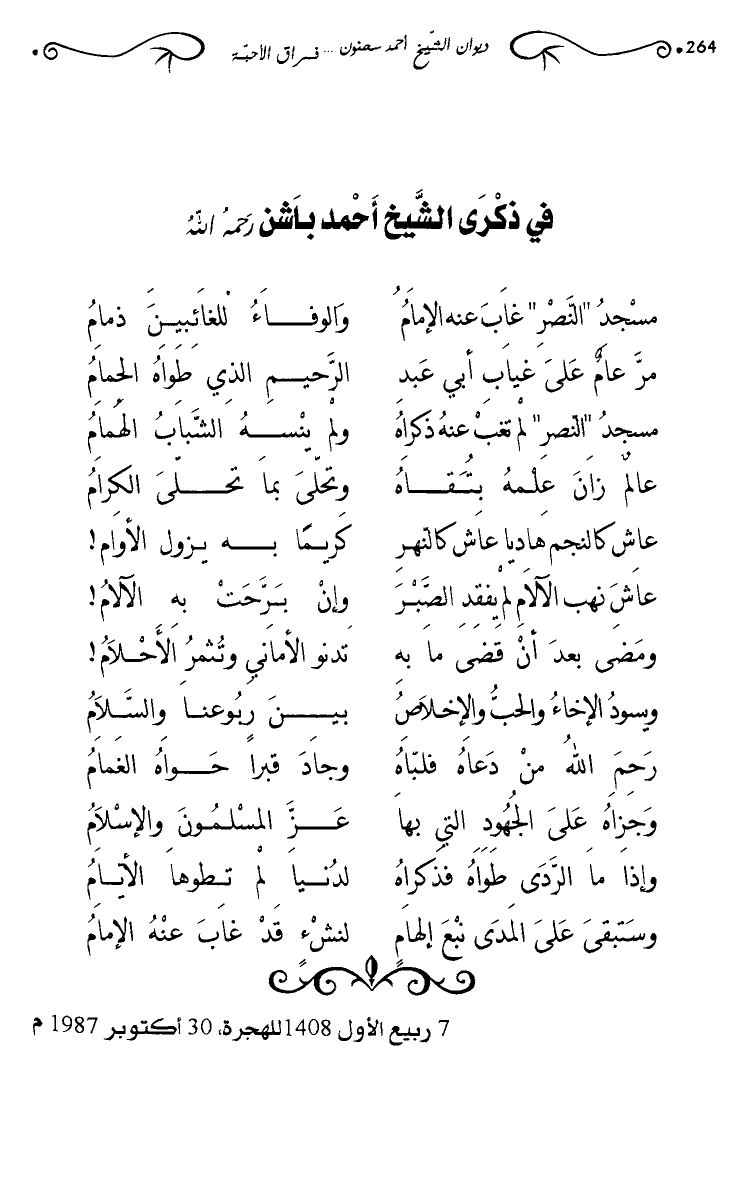 264 ديوان الشّيخ أحمد سحنون ... فراق الأحبّة
في ذكْرَى الشَّيخ أَحْمد بـاَشن رَحمهُ اللّهُ
مسْجدُ "النَّصْرِ" غاَبَ عنه الإمامُ والوفـــاءُ للغائبيـنَ ذمامُ
مرَّ عامٌ عَلىَ غياب أبي عَبد الرَّحيـم الذي طَواهُ الحِمامُ
مسجدُ "النّصر" لمْ تغبْ عنهُ ذكراهُ ولمْ ينْســـهُ الشَّبابُ الهُمامُ
عالمٌ زانَ علْمهُ بتُقـــاهُ وتحلّىَ بما تحـــلّىَ الكرامُ
عاش كالنجم هاديا عاش كالنّهر كريمًا بـــه يزول الأوام!
عاشَ نهب الآلام لمْ يفقد الصَّبْرَ وإنْ بَـرَّحَتْ به الآلامُ!
ومَضى بعدَ أنْ قضَى ما به تدنو الأماني وتُثمرُ الأَحْـلاَمُ!
ويسودُ الإخاءُ والحبُّ والإخلاصُ بيـــنَ ربُوعنـا والسَّـلاَمُ
رَحِمَ اللهُ منْ دَعاهُ فلبّاهُ وجادَ قبراً حَـــواهُ الغمامُ
وَجزاهُ عَلىَ الجُهُودِ التي بها عَـــزَّ المسْلمُـونَ والإسْلاَمُ
وإذا ما الرَّدَى طوَاهُ فذكراهُ لدُنـــيا لمْ تـطوها الأيـامُ
وسَتبقىَ عَلىَ المدَى نبْعَ إلهامٍ لنشْءٍ قدْ غابَ عنْهُ الإمامُ
7 ربيع الأول 1408للهجرة، 30 أكتوبر 1987 م